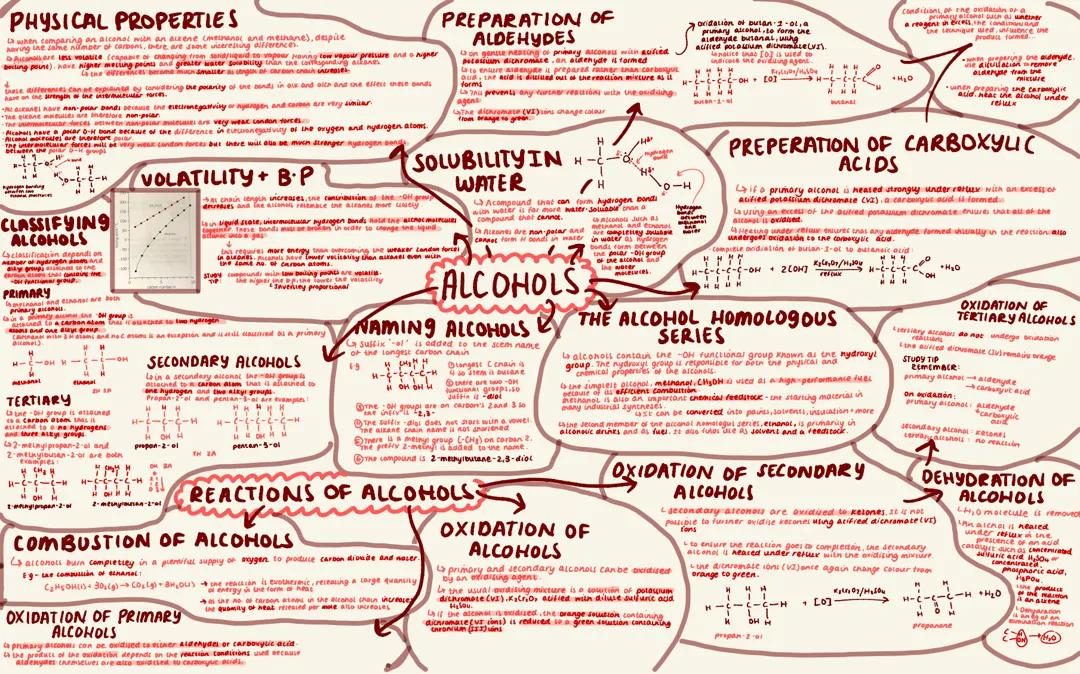 PHYSICAL PROPERTIES
↳ when comparing an alcohol with an alkene (methanol and methane), despite
having the same number of carbons, there are some interesting differences.
↳ Alcohols are less volatile (capable of changing from solid/liquid to vapour having low vapour pressure and a higher
boiling point). have higher melting points and greater water solubility than the corresponding alkanes
↳ the differences become much smaller as length of carbon chain increases.
these differences can be explained by considering the polarity of the bonds in alk and alch and the effect these bonds
have on the strength of the intermolecular forces.
• Alkanes have non-polar bonds because the electronegativity of hydrogen and carbon are very similar.
• The alkane molecules are therefore non-polar.
• The intermolecular forces between non-polar molecules are very weak London forces.
• Alcohols have a polar O-H bond because of the difference in electronegativity of the oxygen and hydrogen atoms.
• Alcohol molecules are therefore polar.
• The intermolecular forces will be very weak London forces but there will also be much stronger hydrogen bonds
between the polar O-H groups
CLASSIFYING
ALCOHOLS
↳ classification depends on
number of hydrogen atoms and
alkyl groups attached to the
carbon atom that contains the
OH functional group.
PRIMARY
↳ methanol and ethanol are both
primary alcohols.
↳ in a primary alcohol the -OH group is
attached to a carbon atom that is attached to two hydrogen
atoms and one alkyl group.
(methanol with 3 H atoms and no C atom is an exception and is still classified as a primary
alcohol).
methanol
ethanol
TERTIARY
↳ the -OH group is attached
to a carbon atom that is
attached to no hydrogens
and three alkyl groups.
2-methylpropan-2-ol and
2-methylbutan-2-ol are both
examples:
2-methylpropan-2-ol
2-methylbutan-2-ol
SECONDARY ALCOHOLS
↳ in a secondary alcohol the -OH group is
attached to a carbon atom that is attached to
one hydrogen and two alkyl groups.
Propan-2-ol and pentan-3-ol are example:
propan-2-ol
pentan-3-ol
VOLATILITY + B.P
↳ As chain length increases, the contribution of the -OH group
decreases and the alcohols resemble the alkanes more closely.
↳ in liquid state, intermolecular hydrogen bonds hold the alcohol molecules
together. These bonds must be broken in order to change the liquid
alcohol into a gas
↳ this requires more energy than overcoming the weaker London forces
in alkanes. Alcohols have lower volatility than alkanes even with
the same no. of carbon atoms.
STUDY TIP
compounds with low boiling points are volatile.
the higher the b.p, the lower the volatility
(inversely proportional
PREPARATION OF
ALDEHYDES
↳ on gentle heating of primary alcohols with acified
potassium dichromate, an aldehyde is formed
↳ to ensure aldehyde is prepared rather than carboxylic
acid, the acid is distilled out of the reaction mixture as it
forms
↳ this prevents any further reactions with the oxidising
agent.
↳ The dichromate (VI) ions change colour
from orange to green.
oxidation of butan-1-ol, a
primary alcohol, to form the
aldehyde butanal, using
acified potassium dichromate(VI).
↳ notice that [O] is used to
indicate the oxidising agent.
+ [O]
K₂Cr₂O₇/H₂SO₄
+ H₂O
butan-1-ol
butanal
Conditions of the oxidation of a
primary alcohol such as whether
a reagent in excess, the conditions and
the technique used, influence the
product formed...
• when preparing the aldehyde,
use distillation to remove
aldehyde from the
mixture
• when preparing the carboxylic
acid, heat the alcohol under
reflux
SOLUBILITY IN
WATER
↳ A compound that can form hydrogen bonds
with water is far more water-soluble than a
compound that cannot.
↳ Alkanes are non-polar and
cannot form H bonds in water
↳ Alcohols such as
methanol and ethanol
are completely soluble
in water as hydrogen
bonds form between
the polar -OH group
of the alcohol and
the water
molecules.
Hydrogen
bonds
between
methanol
and water
PREPERATION OF CARBOXYLIC
ACIDS
↳ if a primary alcohol is heated strongly under reflux with an excess of
acified potassium dichromate (VI), a carboxylic acid is formed.
↳ using an excess of the acified potassium dichromate ensures that all of the
alcohol is oxidised.
↳ Heating under reflux ensures that any aldehyde formed initially in the reaction also
undergoes oxidation to the carboxylic acid.
complete oxidation of butan-1-ol to butanoic acid:
+ 2[O]
K₂Cr₂O₇/H₂SO₄
reflux
+ H₂O
ALCOHOLS
NAMING ALCOHOLS
↳ Suffix '-ol' is added to the stem name
of the longest carbon chain
Eg
① longest C chain is
4 so stem is butane
② there are two -OH
functional groups, so
suffix is -diol
③ The -OH groups are on carbon's 2 and 3 so
the suffix is -2,3-
④ The suffix -diol does not start with a vowel.
The alkane chain name is not shortened
⑤ There is a methyl group (-CH₃) on carbon 2.
The prefix 2-methyl is added to the name.
⑥ The compound is 2-methylbutane-2,3-diol
THE ALCOHOL HOMOLOGOUS
SERIES
↳ alcohols contain the -OH functional group known as the hydroxyl
group. The hydroxyl group is responsible for both the physical and
chemical properties of the alcohols.
↳ the simplest alcohol, methanol, CH₃OH is used as a high-performance fuel
because of its efficient combustion.
methanol is also an important chemical feedstock - the starting material in
many industrial synthesis.
↳ It can be converted into paints, solvents, insulation + more
↳ the second member of the alcohol homologous series, ethanol, is primarily in
alcoholic drinks and as fuel. It also finds use as solvent and a feedstock.
OXIDATION OF
TERTIARY ALCOHOLS
↳ tertiary alcohols do not undergo oxidation
reactions
↳ the acified dichromate (VI) remains orange
STUDY TIP
REMEMBER:
primary alcohol → aldehyde
→ carboxylic acid
ON OXIDATION:
primary alcohol: aldehyde
+ carboxylic
acid
secondary alcohol: ketones
tertiary alcohols: no reaction
REACTIONS OF ALCOHOLS
COMBUSTION OF ALCOHOLS
↳ alcohols burn completely in a plentiful supply of oxygen to produce carbon dioxide and water
Eg - the combustion of ethanol:
→ the reaction is exothermic, releasing a large quantity
of energy in the form of heat
→ as the no. of carbon atoms in the alcohol chain increases
the quantity of heat released per mole also increases.
OXIDATION OF PRIMARY
ALCOHOLS
↳ primary alcohols can be oxidised to either aldehydes or carboxylic acid.
↳ the product of the oxidation depends on the reaction conditions used because
aldehydes themselves are also oxidised to carboxylic acids.
OXIDATION OF
ALCOHOLS
↳ primary and secondary alcohols can be oxidised
by an oxidising agent.
↳ the usual oxidising mixture is a solution of potassium
dichromate (VI), K₂Cr₂O₇ acified with dilute sulfuric acid
H₂SO₄.
↳ if the alcohol is oxidised, the orange solution containing
dichromate (VI ions) is reduced to a green solution containing
chromium (III) ions
OXIDATION OF SECONDARY
ALCOHOLS
↳ secondary alcohols are oxidised to ketones. It is not
possible to further oxidise ketones using acified dichromate (VI)
ions
↳ to ensure the reaction goes to completion, the secondary
alcohol is heated under reflux with the oxidising mixture.
↳ the dichromate ions (VI) once again change colour from
orange to green.
+ [O]
K₂Cr₂O₇/H₂SO₄
+ H₂O
propan-2-ol
propanone
DEHYDRATION OF
ALCOHOLS
↳ H₂O molecule is removed
↳ An alcohol is heated
under reflux in the
presence of an acid
catalyst such as concentrated
sulfuric acid H₂SO₄ or
concentrated
phosphoric acid,
H₃PO₄.
↳ The product
of the reaction
is an alkene
↳ Dehydration
is an eg of an
elimination reaction